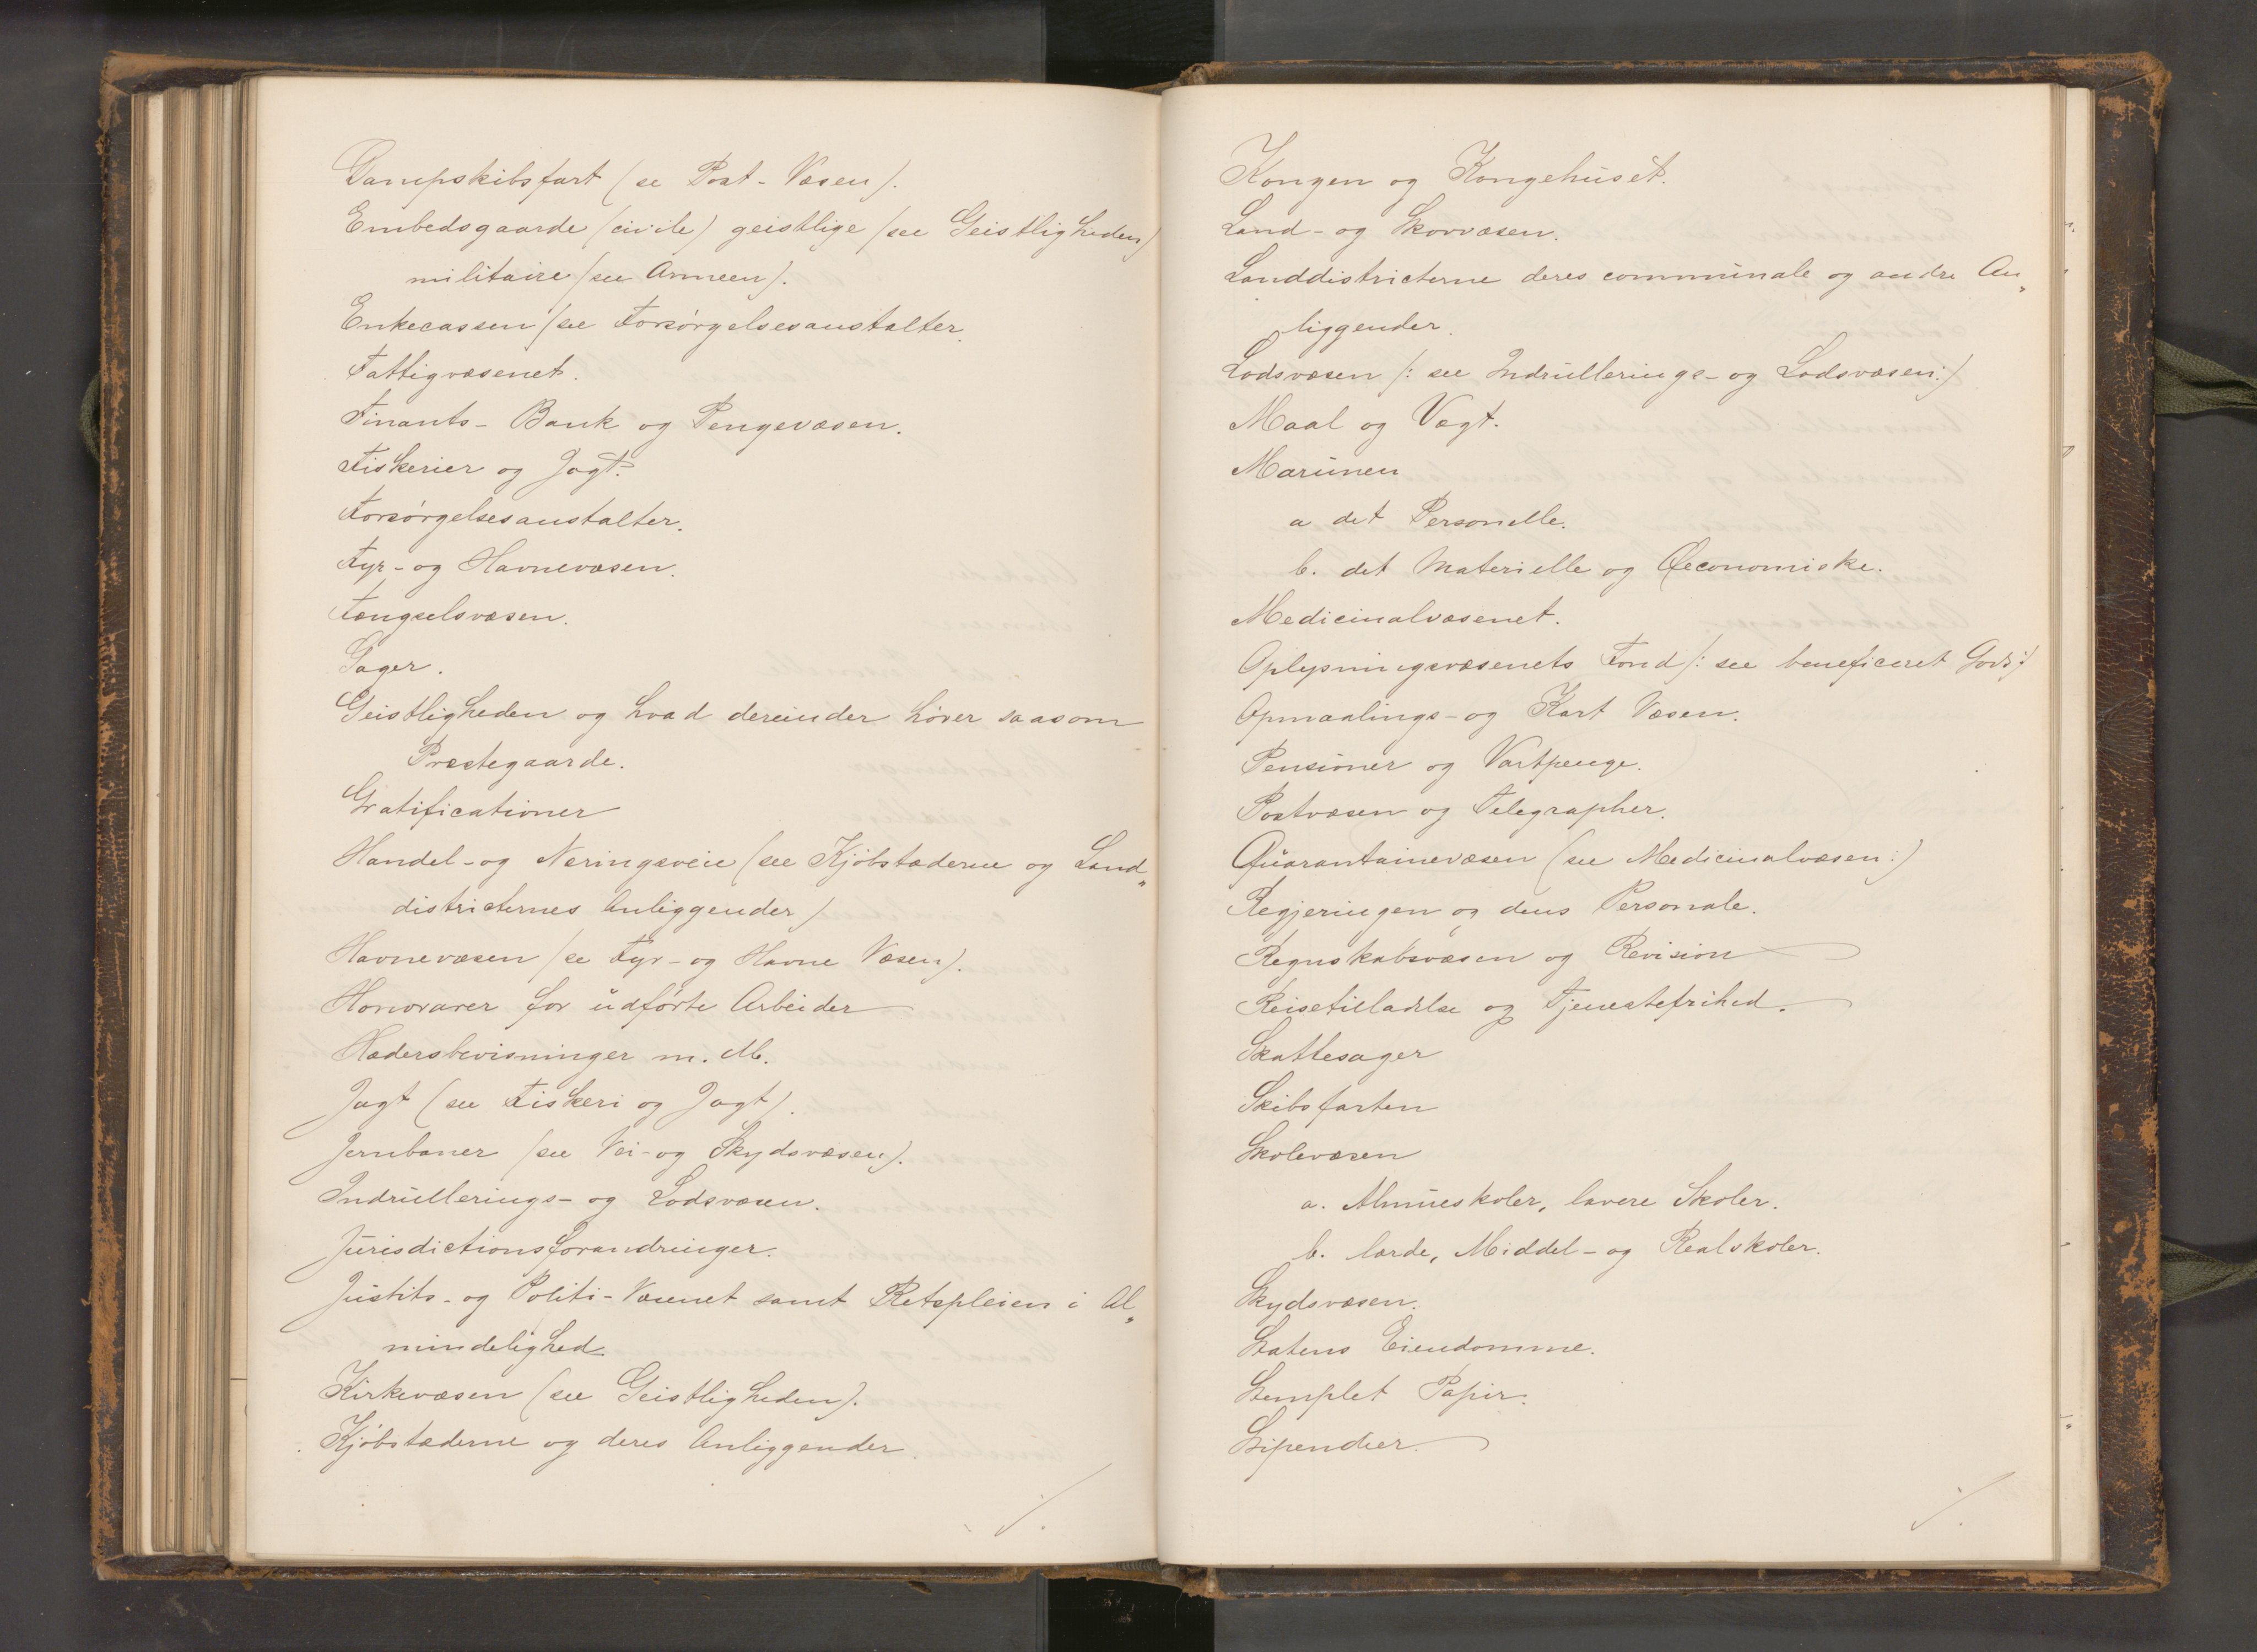 Dampskibsfart (se Post-Væsen).
Embedsgaarde (civile) geistlige (see Geistligheden)
militaire (see Armeen).
Enkecassen (see Forsørgelsesanstalter.
Fattigvæsenet.
Finants- Bank og Pengevæsen.
Fiskerier og Jagt.
Forsørgelsesanstalter.
Fyr- og Havnevæsen.
Fængselsvæsen.
Gager.
Geistligheden og hvad dereunder hører saasom
Præstegaarde.
Gratificationer
Handel- og Næringsveie (see Kjöbstæderne og Land„
districternes Anliggender)
Havnevæsen (se Fyr- og Havne Væsen).
Honorarer for udførte Arbeider
Hædersbevisninger m. M.
Jagt (see Fiskeri og Jagt).
Jernbaner (see Vei- og Skydsvæsen).
Indrullerings- og Lodsvæsen.
Jurisdictionsforandringer.
Justits- og Politi-Væsenet samt Retspleien i Al„
mindelighed
Kirkevæsen (see Geistligheden).
Kjöbstæderne og deres Anliggender.
./.
Kongen og Kongehuset.
Land- og Skovvæsen.
Landdistricterne deres communale og andre An„
liggender.
Lodsvæsen /: see Indrullerings- og Lodsvæsen:/
Maal og Vægt.
Marinen
a det Personelle.
b. det Materielle og Oeconomiske.
Medicinalvæsenet.
Oplysningsvæsenets Fond /: see beneficeret Gods:/
Opmaalings- og Kart Væsen.
Pensioner og Vartpenge.
Postvæsen og Telegrapher.
Quarantainevæsen (see Medicinalvæsen:)
Regjeringen og dens Personale.
Regnskabsvæsen og Revision
Reisetilladelse og Tjenestefrihed.
Skattesager
Skibsfarten
Skolevæsen
a. Almueskoler, lavere Skoler.
b. lærde, Middel- og Realskoler.
Skydsvæsen.
Statens Eiendomme.
Stemplet Papir.
Stipendier.
./.